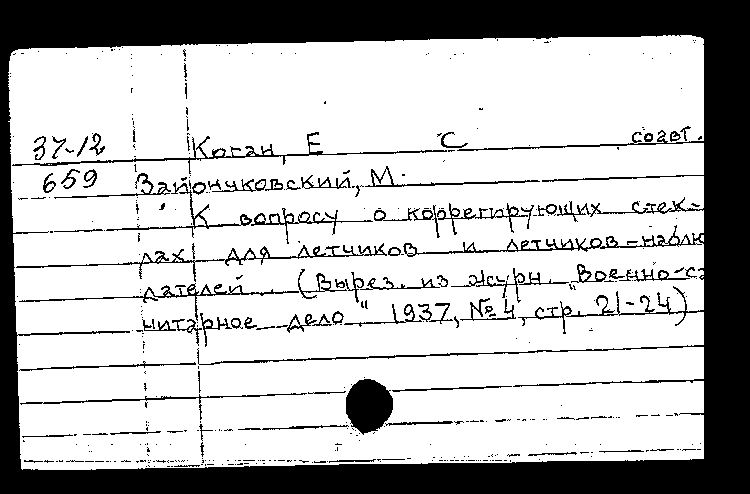 37-12 Коган, Е С соавт.
659 Зайончковский, М.
К вопросу о коррегирующих стек-
лах для летчиков и летчиков-наблю
дателей. (Вырез. из журн. "Военно-са
нитарное дело" 1937, № 4, стр. 21-24)